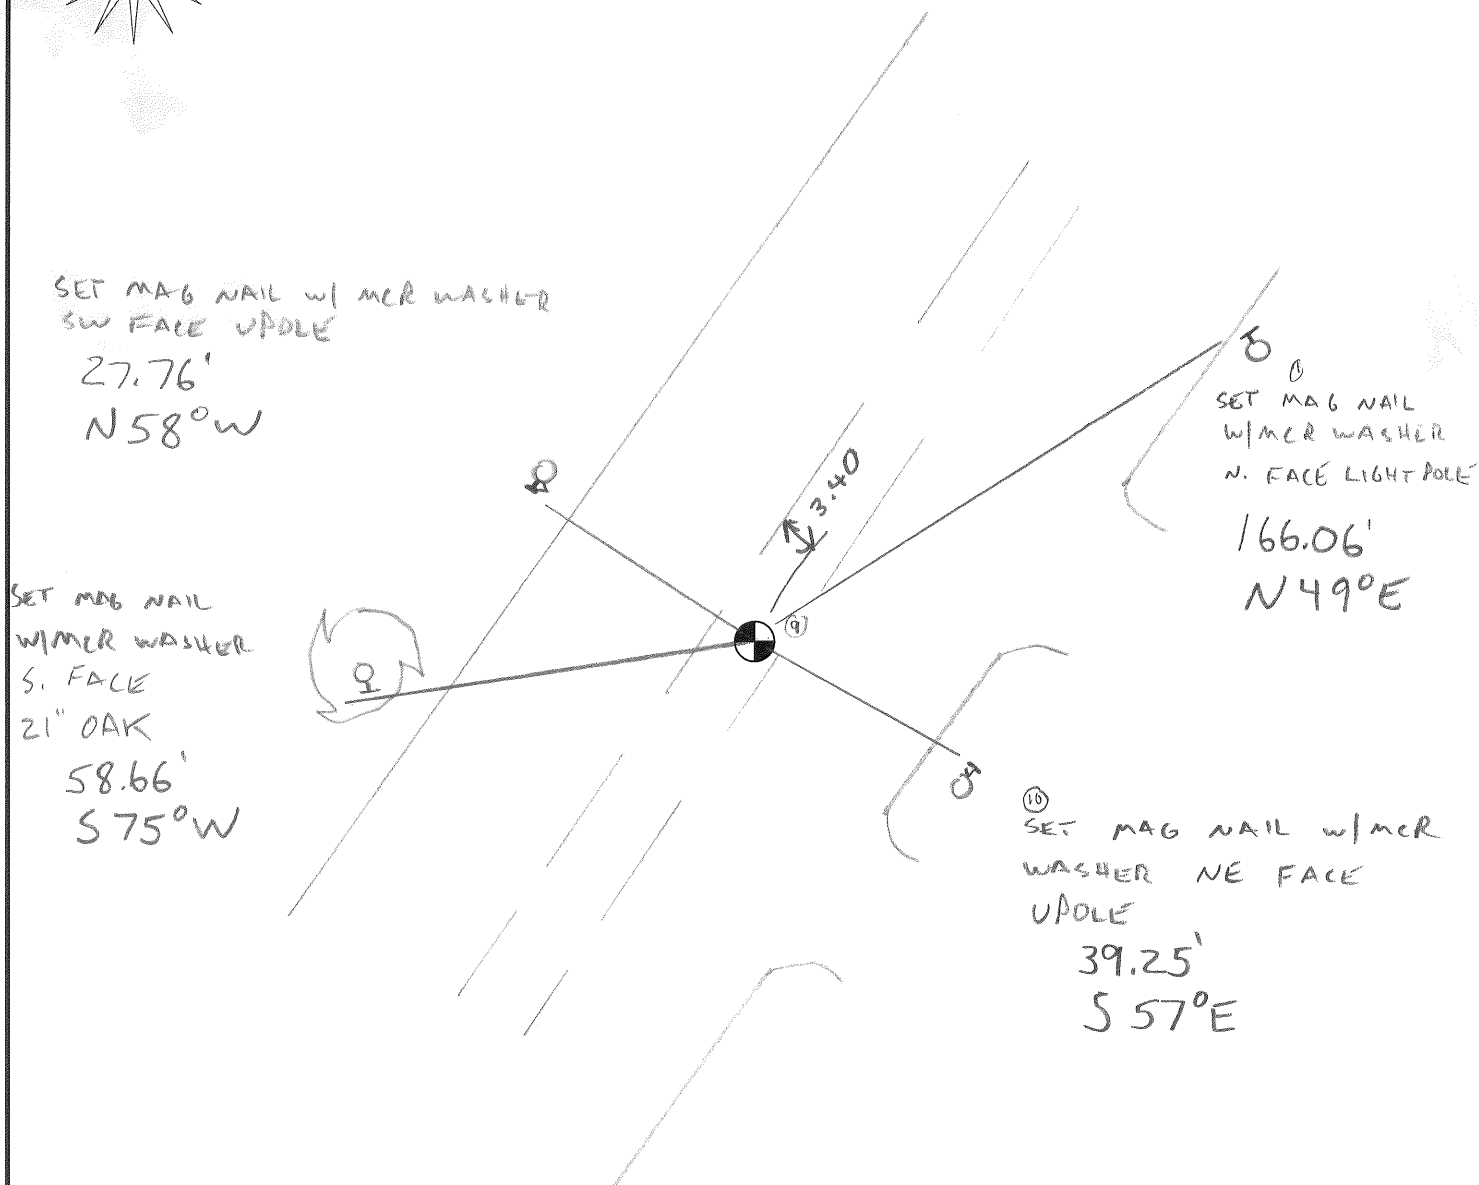 SET MAG NAIL W/ MCR WASHER
SW FACE UPOLE
27.76'
N 58° W
SET MAG NAIL
W/MCR WASHER
S. FACE
21" OAK
58.66'
S 75° W
3.40
9
1
SET MAG NAIL
W/MCR WASHER
N. FACE LIGHT POLE
166.06'
N 49° E
10
SET MAG NAIL W/MCR
WASHER NE FACE
UPOLE
39.25'
S 57° E